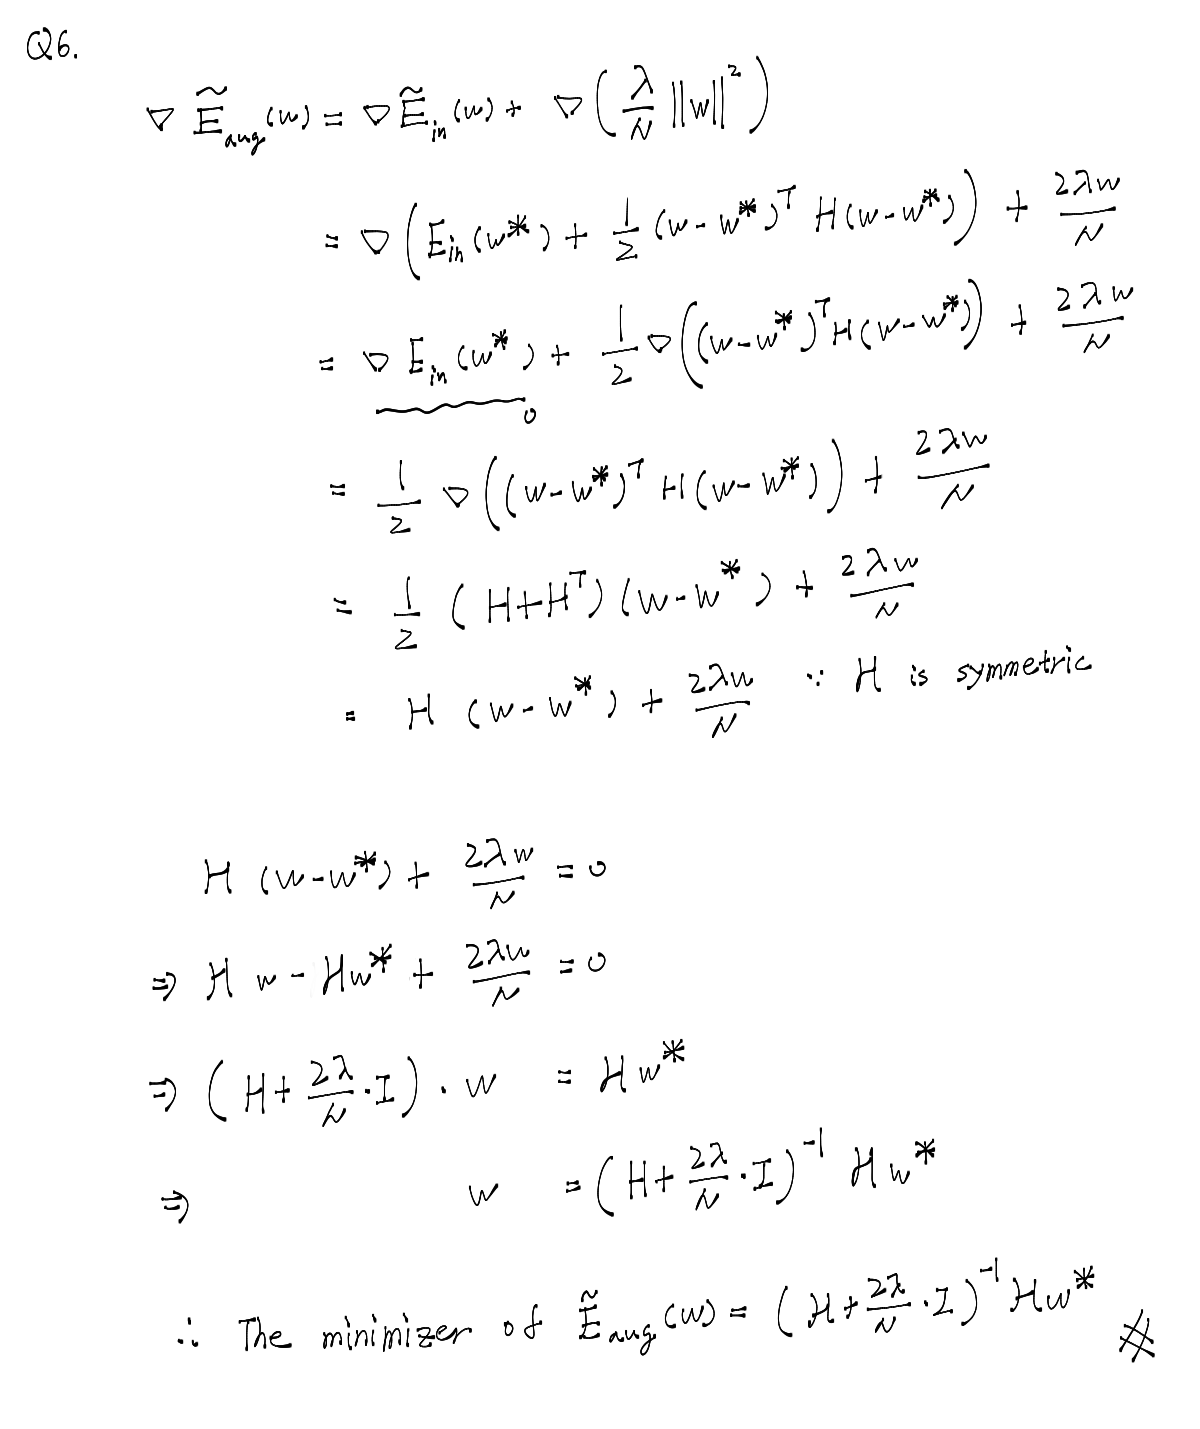 Q6.
∇ Ẽ_aug(w) = ∇ Ẽ_in(w) + ∇ ( λ/N ||w||² )
= ∇ ( E_in(w*) + 1/2 (w-w*)ᵀ H(w-w*) ) + 2λw/N
= ∇ E_in(w*) + 1/2 ∇ ( (w-w*)ᵀ H(w-w*) ) + 2λw/N
0
= 1/2 ∇ ( (w-w*)ᵀ H(w-w*) ) + 2λw/N
= 1/2 (H+Hᵀ)(w-w*) + 2λw/N
= H (w-w*) + 2λw/N ∵ H is symmetric
H (w-w*) + 2λw/N = 0
⇒ H w - Hw* + 2λw/N = 0
⇒ ( H + 2λ/N · I ) · w = Hw*
⇒ w = ( H + 2λ/N · I )⁻¹ Hw*
∴ The minimizer of Ẽ_aug(w) = ( H + 2λ/N · I )⁻¹ Hw* #